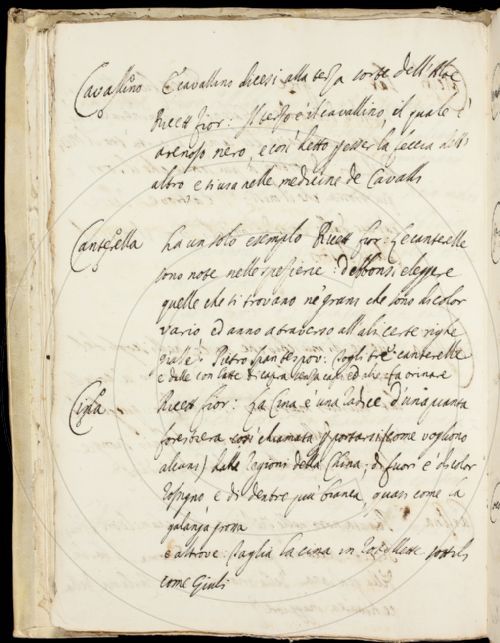 Cavallino E' cavallino dicesi alla terza sorte dell'Aloe
Ricett fior: Il terzo é il cavallino, il quale é
arenoso nero, e cosi detto p esser la feccia dell'
altro e si usa nelle medicine de Cavalli
Canterella ha un solo esempio Ricett fior: Le canterelle
sono note nelle spezierie: debbonsi eleggere
quelle che si trovano ne grani che sono di color
vario ed anno a traverso all'ali certe righe
gialle. Pietro Span tes pov: togli tre canterelle
e dalle con latte di capra senza capi ed ali fa orinare
Cina Ricett fior: La Cina é una radice d'una pianta
forestiera cosi chiamata p portarsi (come vogliono
alcuni) dalle Regioni della China; di fuori é di color
rosigno e di dentro piu bianca, quasi come la
galanga grossa
e altrove: Taglia la cina in rotellette sottili
come Giuli